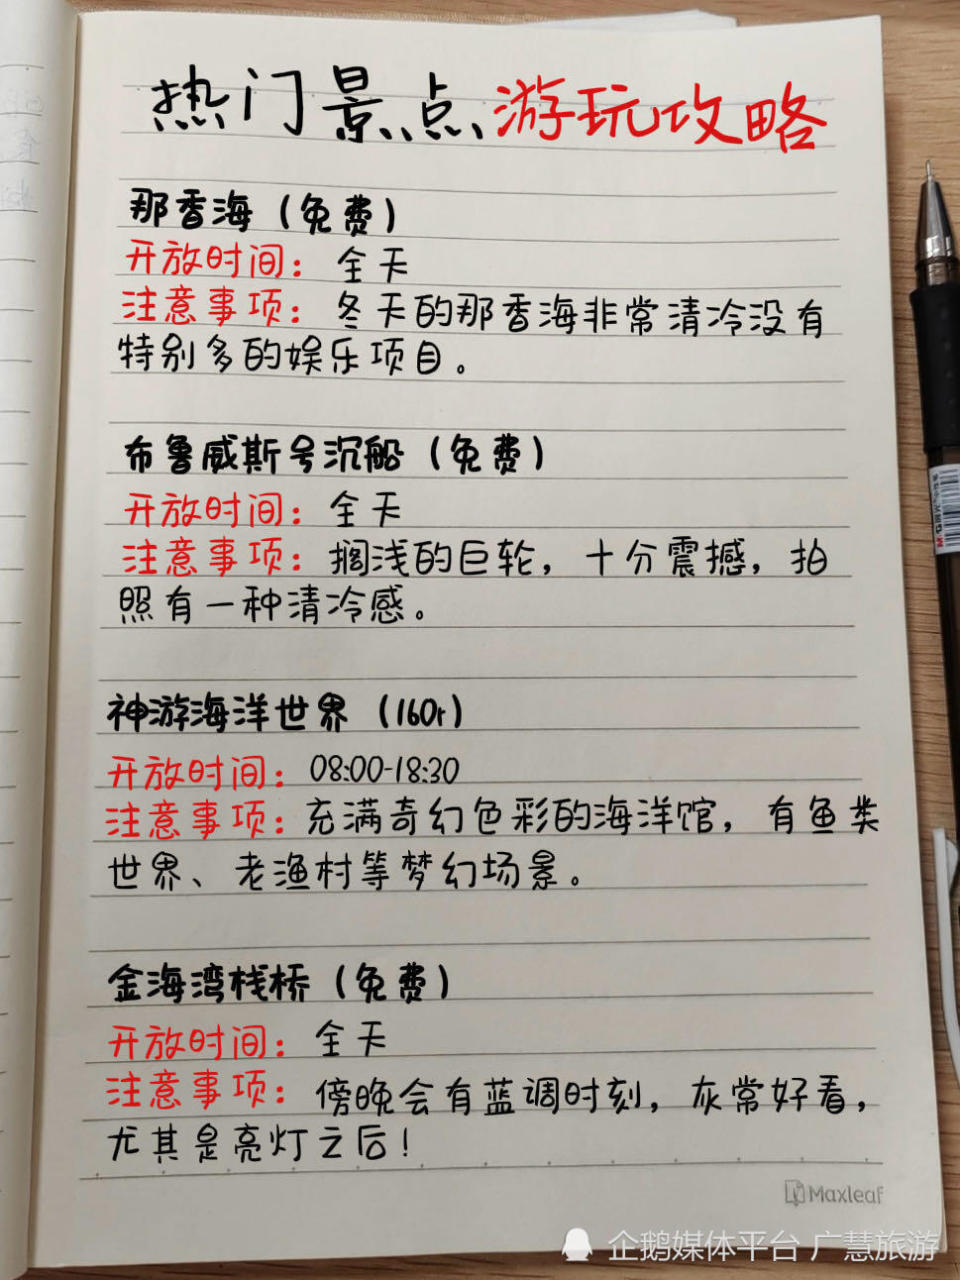 热门景点游玩攻略
那香海（免费）
开放时间：全天
注意事项：冬天的那香海非常清冷没有
特别多的娱乐项目。
布鲁威斯号沉船（免费）
开放时间：全天
注意事项：搁浅的巨轮，十分震撼，拍
照有一种清冷感。
神游海洋世界（160r）
开放时间：08:00-18:30
注意事项：充满奇幻色彩的海洋馆，有鱼类
世界、老渔村等梦幻场景。
金海湾栈桥（免费）
开放时间：全天
注意事项：傍晚会有蓝调时刻，灰常好看，
尤其是亮灯之后！
Maxleaf
企鹅媒体平台 广慧旅游